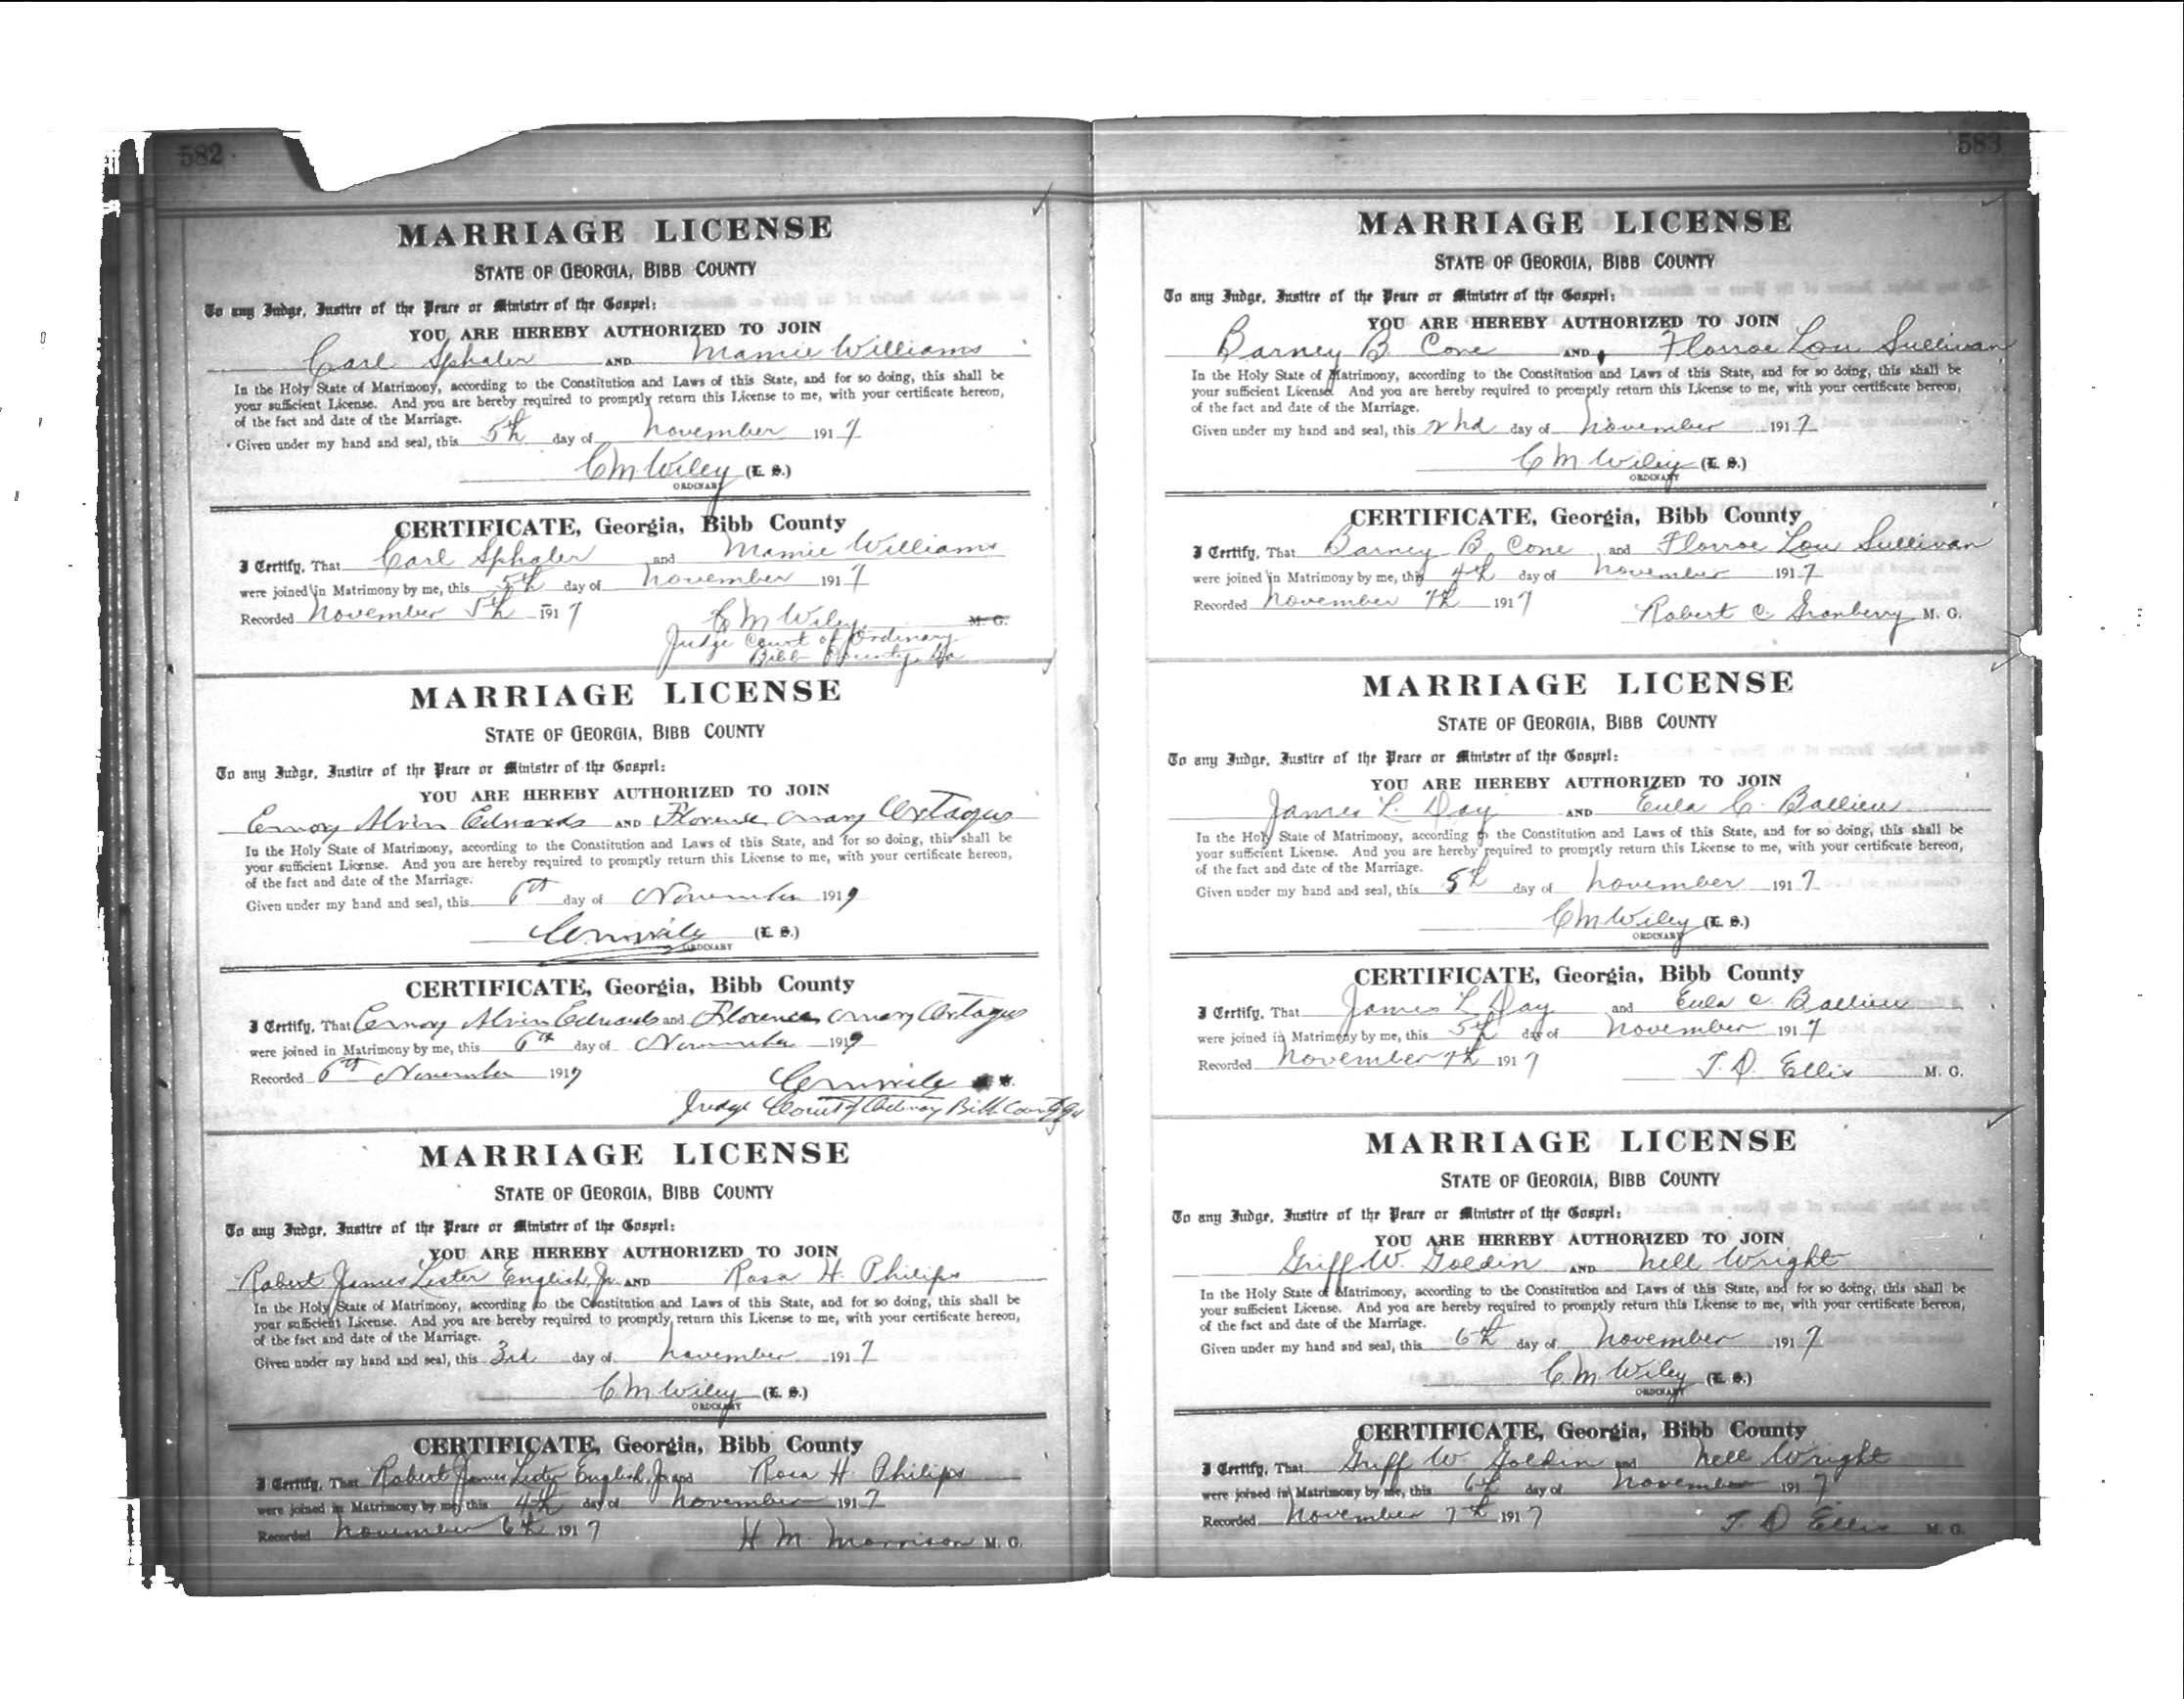 582
MARRIAGE LICENSE
STATE OF GEORGIA, BIBB COUNTY
To any Judge, Justice of the Peace or Minister of the Gospel:
YOU ARE HEREBY AUTHORIZED TO JOIN
Carl Sphaler AND Mamie Williams
In the Holy State of Matrimony, according to the Constitution and Laws of this State, and for so doing, this shall be
your sufficient License. And you are hereby required to promptly return this License to me, with your certificate hereon,
of the fact and date of the Marriage.
Given under my hand and seal, this 5th day of November 1917
C M Wiley (L. S.)
ORDINARY
CERTIFICATE, Georgia, Bibb County
I Certify, That Carl Sphaler and Mamie Williams
were joined in Matrimony by me, this 5th day of November 1917
Recorded November 5th 1917 C M Wiley M. G.
Judge Court of Ordinary
Bibb County, Ga
MARRIAGE LICENSE
STATE OF GEORGIA, BIBB COUNTY
To any Judge, Justice of the Peace or Minister of the Gospel:
YOU ARE HEREBY AUTHORIZED TO JOIN
Emory Alvin Edwards AND Florence Mary
In the Holy State of Matrimony, according to the Constitution and Laws of this State, and for so doing, this shall be
your sufficient License. And you are hereby required to promptly return this License to me, with your certificate hereon,
of the fact and date of the Marriage.
Given under my hand and seal, this 6th day of November 1917
CM Wiley (L. S.)
ORDINARY
CERTIFICATE, Georgia, Bibb County
I Certify, That Emory Alvin Edwards and Florence Mary
were joined in Matrimony by me, this 6th day of November 1917
Recorded 6th November 1917 CM Wiley
Judge Court of Ordinary Bibb County Ga
MARRIAGE LICENSE
STATE OF GEORGIA, BIBB COUNTY
To any Judge, Justice of the Peace or Minister of the Gospel:
YOU ARE HEREBY AUTHORIZED TO JOIN
Robert James Lester English, Jr. AND Rosa H. Philips
In the Holy State of Matrimony, according to the Constitution and Laws of this State, and for so doing, this shall be
your sufficient License. And you are hereby required to promptly return this License to me, with your certificate hereon,
of the fact and date of the Marriage.
Given under my hand and seal, this 3rd day of November 1917
C M Wiley (L. S.)
ORDINARY
CERTIFICATE, Georgia, Bibb County
I Certify, That Robert James Lester English, Jr and Rosa H Philips
were joined in Matrimony by me, this 4th day of November 1917
Recorded November 6th 1917 H M Morrison M. G.
583
MARRIAGE LICENSE
STATE OF GEORGIA, BIBB COUNTY
To any Judge, Justice of the Peace or Minister of the Gospel:
YOU ARE HEREBY AUTHORIZED TO JOIN
Barney B. Cone AND Florroe Lou Sullivan
In the Holy State of Matrimony, according to the Constitution and Laws of this State, and for so doing, this shall be
your sufficient License. And you are hereby required to promptly return this License to me, with your certificate hereon,
of the fact and date of the Marriage.
Given under my hand and seal, this 2nd day of November 1917
C M Wiley (L. S.)
ORDINARY
CERTIFICATE, Georgia, Bibb County
I Certify, That Barney B Cone and Florroe Lou Sullivan
were joined in Matrimony by me, this 4th day of November 1917
Recorded November 7th 1917 Robert C. Granberry M. G.
MARRIAGE LICENSE
STATE OF GEORGIA, BIBB COUNTY
To any Judge, Justice of the Peace or Minister of the Gospel:
YOU ARE HEREBY AUTHORIZED TO JOIN
James L. Day AND Eula C. Ballieu
In the Holy State of Matrimony, according to the Constitution and Laws of this State, and for so doing, this shall be
your sufficient License. And you are hereby required to promptly return this License to me, with your certificate hereon,
of the fact and date of the Marriage.
Given under my hand and seal, this 5th day of November 1917
C M Wiley (L. S.)
ORDINARY
CERTIFICATE, Georgia, Bibb County
I Certify, That James L Day and Eula C Ballieu
were joined in Matrimony by me, this 5th day of November 1917
Recorded November 7th 1917 T. D. Ellis M. G.
MARRIAGE LICENSE
STATE OF GEORGIA, BIBB COUNTY
To any Judge, Justice of the Peace or Minister of the Gospel:
YOU ARE HEREBY AUTHORIZED TO JOIN
Griff W. Goldin AND Nell Wright
In the Holy State of Matrimony, according to the Constitution and Laws of this State, and for so doing, this shall be
your sufficient License. And you are hereby required to promptly return this License to me, with your certificate hereon,
of the fact and date of the Marriage.
Given under my hand and seal, this 6th day of November 1917
C. M. Wiley (L. S.)
ORDINARY
CERTIFICATE, Georgia, Bibb County
I Certify, That Griff W Goldin and Nell Wright
were joined in Matrimony by me, this 6th day of November 1917
Recorded November 7th 1917 T. D Ellis M. G.